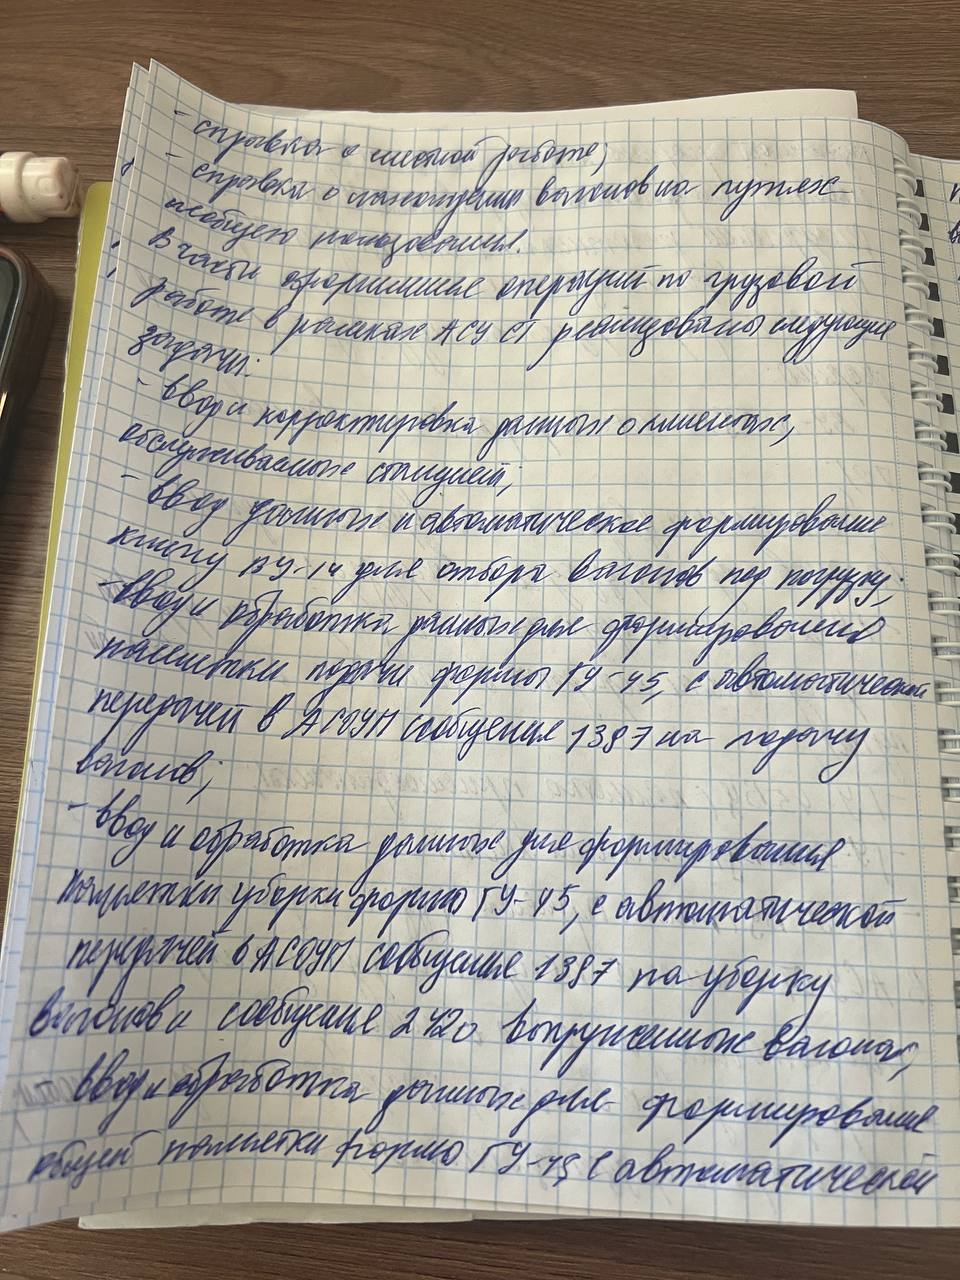 - справка о местной работе;
- справка о нахождении вагонов на путях
необщего пользования.
В части оформление операций по грузовой
работе в рамках АСУ СТ реализованы следующие
задачи:
- ввод и корректировка данных о клиентах,
обслуживаемых станцией;
- ввод данных и автоматическое формирование
книги ВУ-14 для отбора вагонов под погрузку;
- ввод и обработка данных для формирования
памятки подачи формы ГУ-45, с автоматической
передачей в АСОУП сообщения 1397 на подачу
вагонов;
- ввод и обработка данных для формирования
памятки уборки формы ГУ-45, с автоматической
передачей в АСОУП сообщения 1397 на уборку
вагонов и сообщения 242 о выгруженных вагонах;
ввод и обработка данных для формирование
общей памятки формы ГУ-45 с автоматической